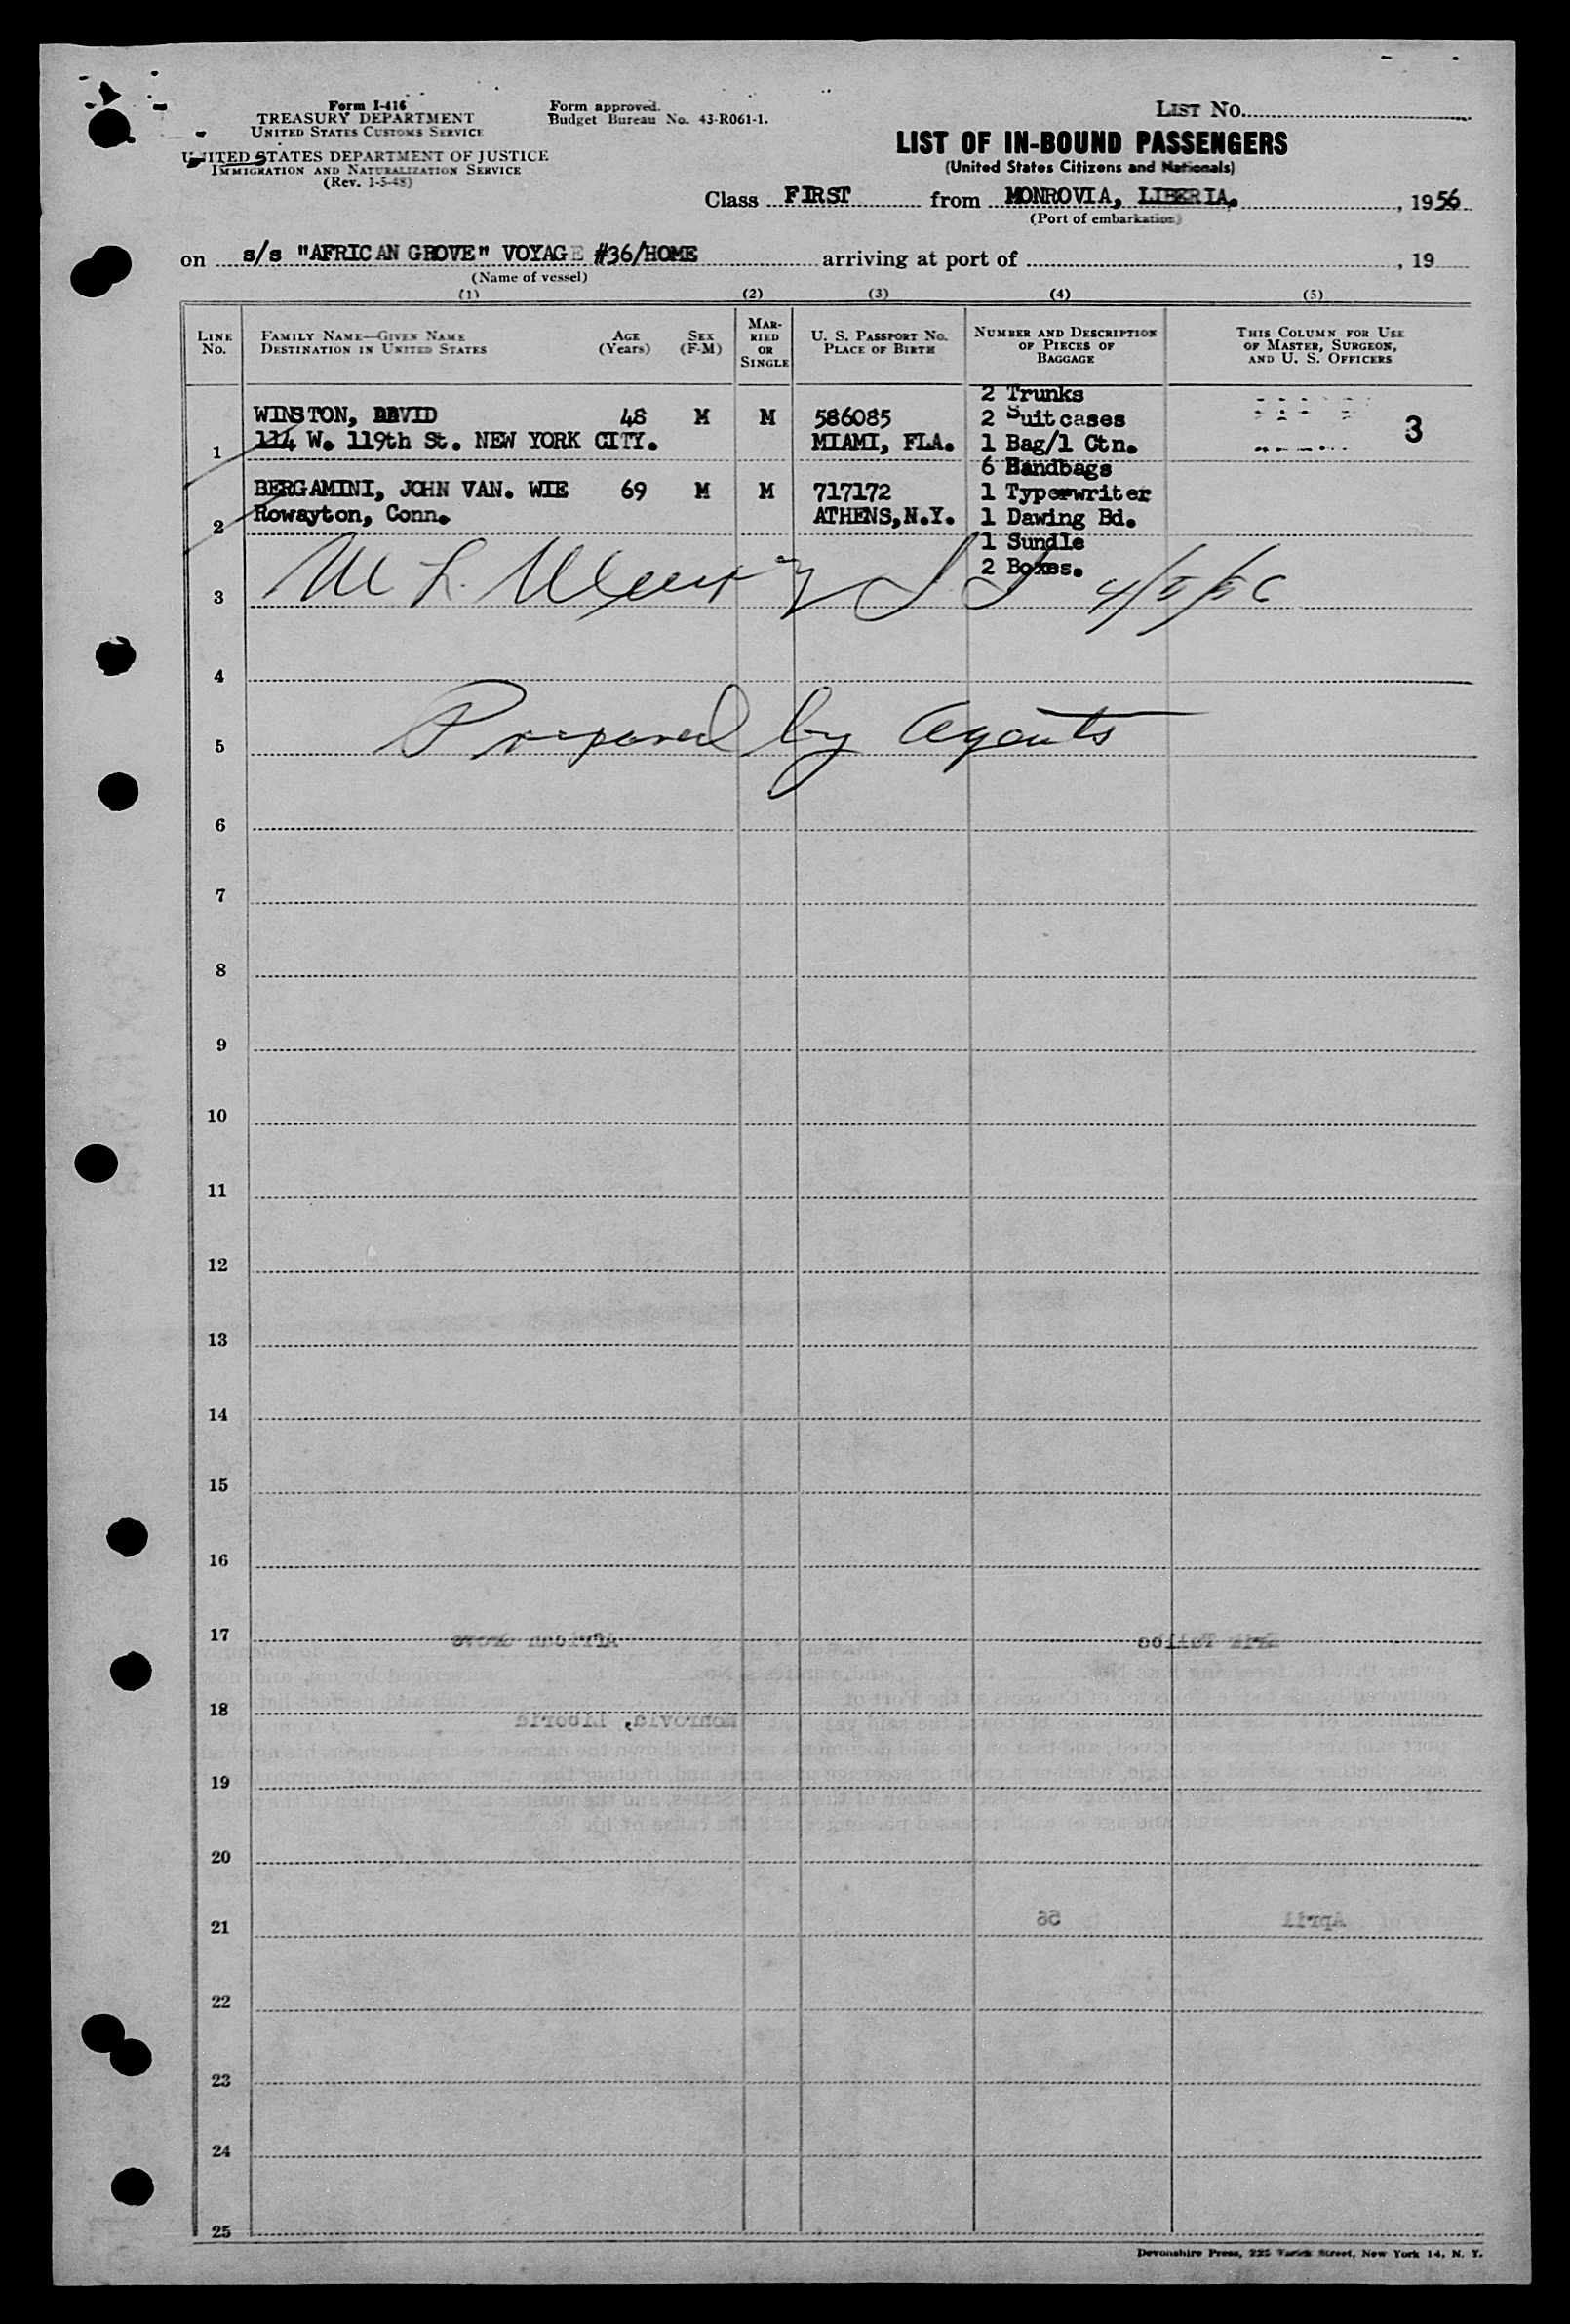 Form I-416
TREASURY DEPARTMENT
UNITED STATES CUSTOMS SERVICE
UNITED STATES DEPARTMENT OF JUSTICE
IMMIGRATION AND NATURALIZATION SERVICE
(Rev. 1-5-48)
Form approved.
Budget Bureau No. 43-R061-1.
LIST NO.
LIST OF IN-BOUND PASSENGERS
(United States Citizens and Nationals)
Class FIRST from MONROVIA, LIBERIA. , 1956
(Port of embarkation)
on s/s "AFRICAN GROVE" VOYAGE #36/HOME arriving at port of , 19
(Name of vessel)
(1) (2) (3) (4) (5)
LINE NO.
FAMILY NAME—GIVEN NAME
DESTINATION IN UNITED STATES
AGE (Years)
SEX (F-M)
MARRIED OR SINGLE
U. S. PASSPORT NO.
PLACE OF BIRTH
NUMBER AND DESCRIPTION OF PIECES OF BAGGAGE
THIS COLUMN FOR USE OF MASTER, SURGEON, AND U. S. OFFICERS
2 Trunks
WINSTON, DAVID 48 M M 586085 2 Suitcases 3
1 114 W. 119th St. NEW YORK CITY. MIAMI, FLA. 1 Bag/1 Ctn.
6 Handbags
BERGAMINI, JOHN VAN. WIE 69 M M 717172 1 Typerwriter
2 Rowayton, Conn. ATHENS, N.Y. 1 Dawing Bd.
1 Sundle
2 Boxes.
3 4/5/56
4
5 Prepared by agents
6
7
8
9
10
11
12
13
14
15
16
17
18
19
20
21
22
23
24
25
Devonshire Press, 225 Varick Street, New York 14, N. Y.